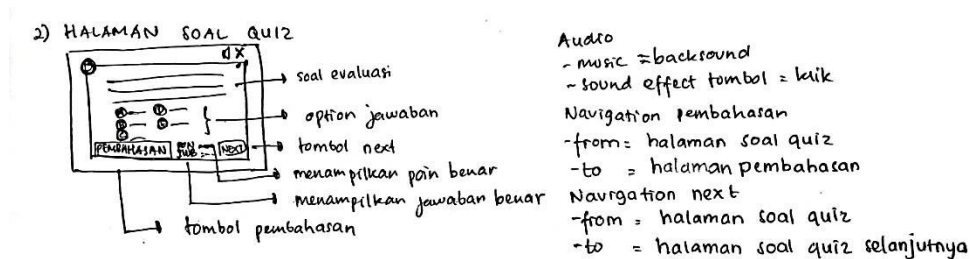 2) HALAMAN SOAL QUIZ
X
soal evaluasi
option jawaban
PEMBAHASAN
NEXT
tombol next
menampilkan poin benar
menampilkan jawaban benar
tombol pembahasan
Audio
- music = backsound
- sound effect tombol = klik
Navigation pembahasan
-from = halaman soal quiz
-to = halaman pembahasan
Navigation next
-from = halaman soal quiz
-to = halaman soal quiz selanjutnya